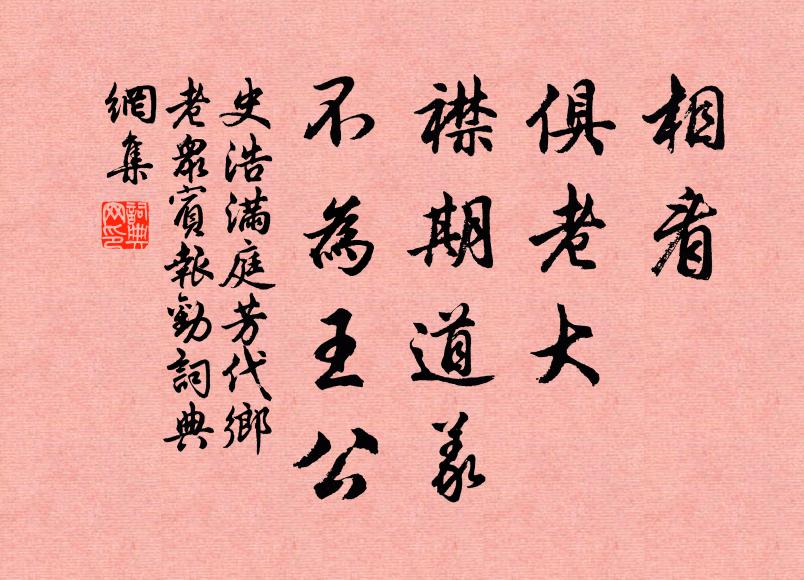 相看
俱老大
襟期道義
不為王公
史浩滿庭芳代鄉
老眾賓報勸詞典
網集
詞典
网印